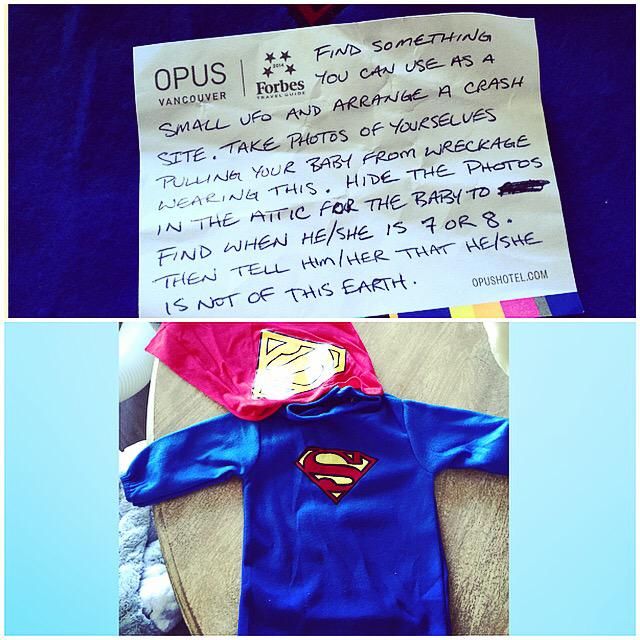 OPUS
VANCOUVER
2014
Forbes
TRAVEL GUIDE
FIND SOMETHING
YOU CAN USE AS A
SMALL UFO AND ARRANGE A CRASH
SITE. TAKE PHOTOS OF YOURSELVES
PULLING YOUR BABY FROM WRECKAGE
WEARING THIS. HIDE THE PHOTOS
IN THE ATTIC FOR THE BABY TO
FIND WHEN HE/SHE IS 7 OR 8.
THEN TELL HIM/HER THAT HE/SHE
IS NOT OF THIS EARTH.
OPUSHOTEL.COM
S
S